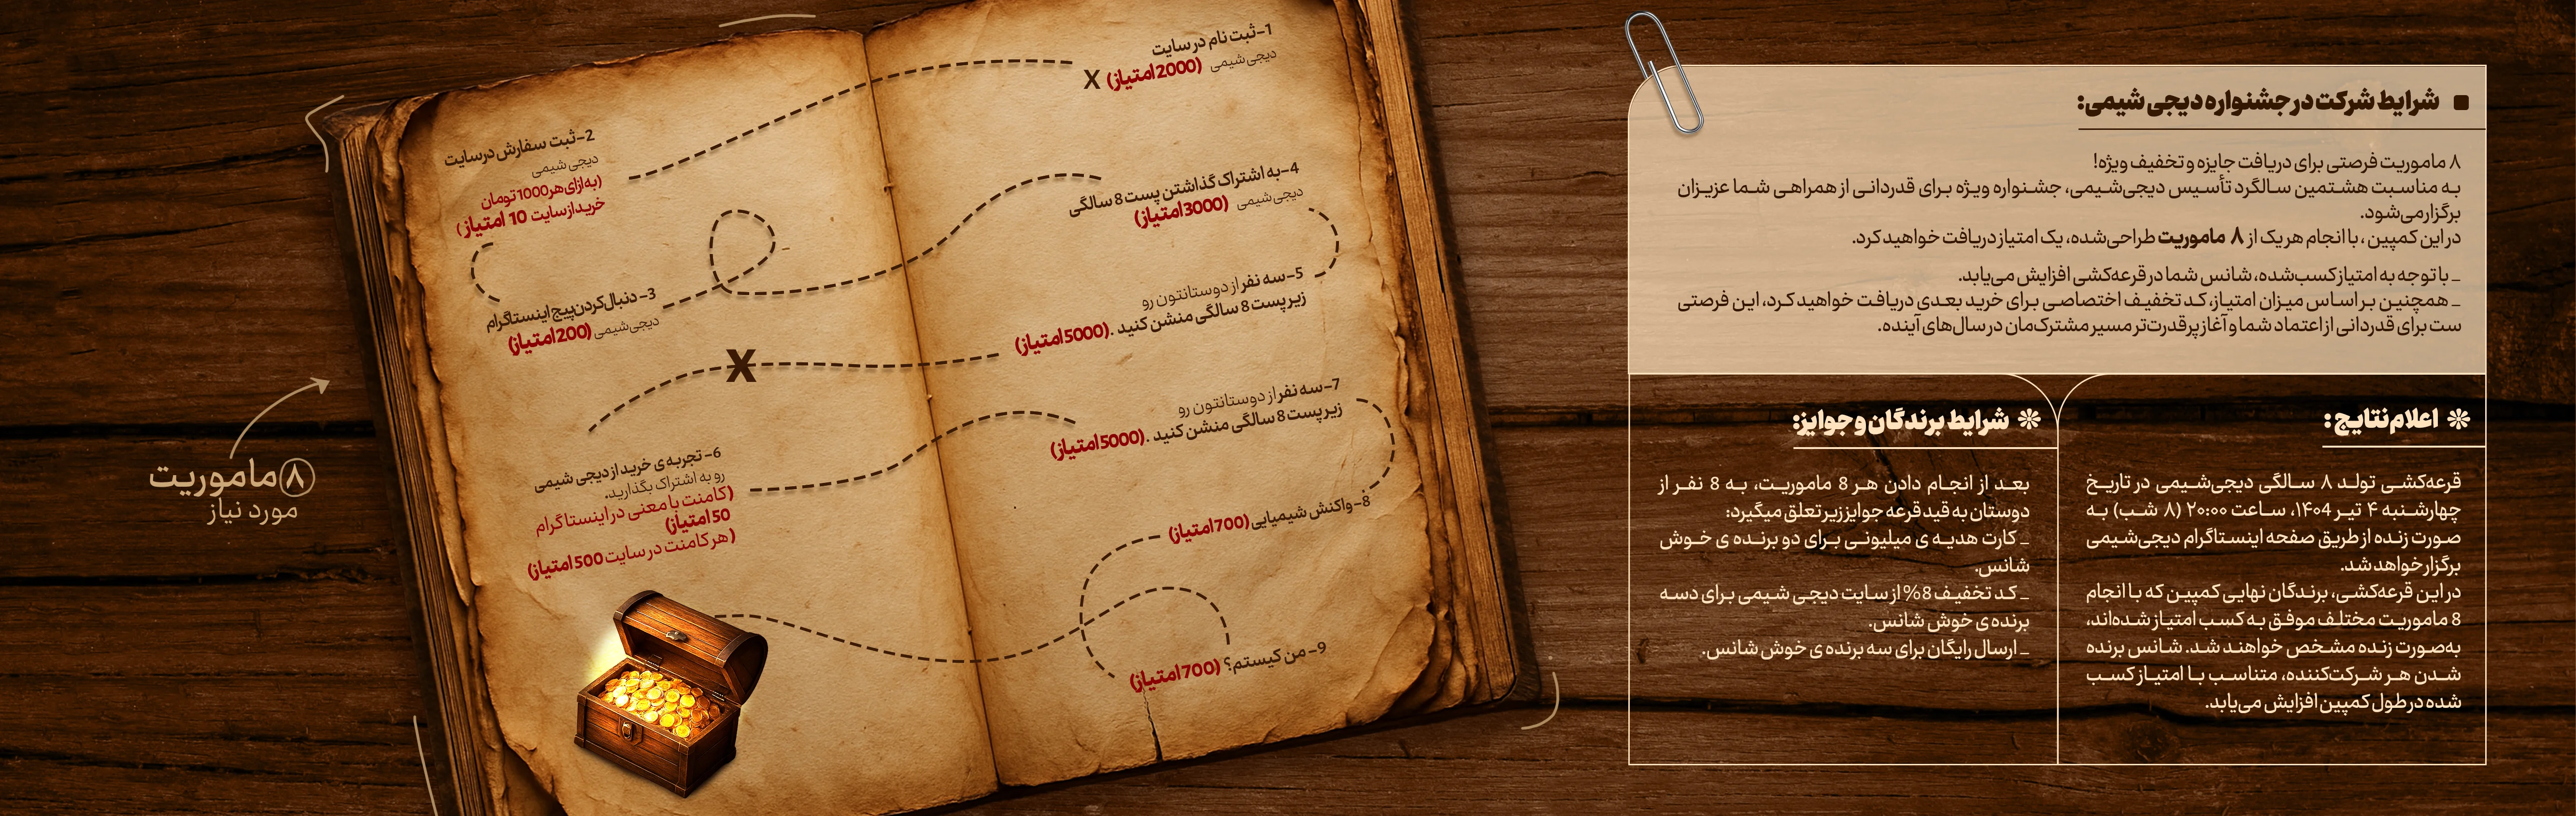 شرایط شرکت در جشنواره دیجی شیمی:
۸ ماموریت فرصتی برای دریافت جایزه و تخفیف ویژه!
به مناسبت هشتمین سالگرد تأسیس دیجی‌شیمی، جشنواره ویژه برای قدردانی از همراهی شما عزیزان
برگزار می‌شود.
در این کمپین ، با انجام هر یک از ۸ ماموریت طراحی‌شده، یک امتیاز دریافت خواهید کرد.
_ با توجه به امتیاز کسب‌شده، شانس شما در قرعه‌کشی افزایش می‌یابد.
_ همچنین بر اساس میزان امتیاز، کد تخفیف اختصاصی برای خرید بعدی دریافت خواهید کرد، این فرصتی
ست برای قدردانی از اعتماد شما و آغاز پرقدرت‌تر مسیر مشترک‌مان در سال‌های آینده.
اعلام نتایج:
قرعه‌کشی تولد ۸ سالگی دیجی‌شیمی در تاریخ
چهارشنبه ۴ تیر ۱۴۰۴، ساعت ۲۰:۰۰ (۸ شب) به
صورت زنده از طریق صفحه اینستاگرام دیجی‌شیمی
برگزار خواهد شد.
در این قرعه‌کشی، برندگان نهایی کمپین که با انجام
8 ماموریت مختلف موفق به کسب امتیاز شده‌اند،
به‌صورت زنده مشخص خواهند شد. شانس برنده
شدن هر شرکت‌کننده، متناسب با امتیاز کسب
شده در طول کمپین افزایش می‌یابد.
شرایط برندگان و جوایز:
بعد از انجام دادن هر 8 ماموریت، به 8 نفر از
دوستان به قید قرعه جوایز زیر تعلق میگیرد:
_ کارت هدیه ی میلیونی برای دو برنده ی خوش
شانس.
_ کد تخفیف 8% از سایت دیجی شیمی برای دسه
برنده ی خوش شانس.
_ ارسال رایگان برای سه برنده ی خوش شانس.
1-ثبت نام در سایت
دیجی شیمی (2000 امتیاز) X
2-ثبت سفارش درسایت
دیجی شیمی
(به ازای هر 1000 تومان
خرید از سایت 10 امتیاز )
3- دنبال کردن پیج اینستاگرام
دیجی شیمی (200 امتیاز)
4-به اشتراک گذاشتن پست 8 سالگی
دیجی شیمی (3000 امتیاز)
5-سه نفر از دوستانتون رو
زیر پست 8 سالگی منشن کنید .(5000 امتیاز)
X
6- تجربه ی خرید از دیجی شیمی
رو به اشتراک بگذارید.
(کامنت با معنی در اینستاگرام
50 امتیاز)
(هر کامنت در سایت 500 امتیاز)
7-سه نفر از دوستانتون رو
زیر پست 8 سالگی منشن کنید .(5000 امتیاز)
8-واکنش شیمیایی (700 امتیاز)
9- من کیستم؟ (700 امتیاز)
۸ ماموریت
مورد نیاز